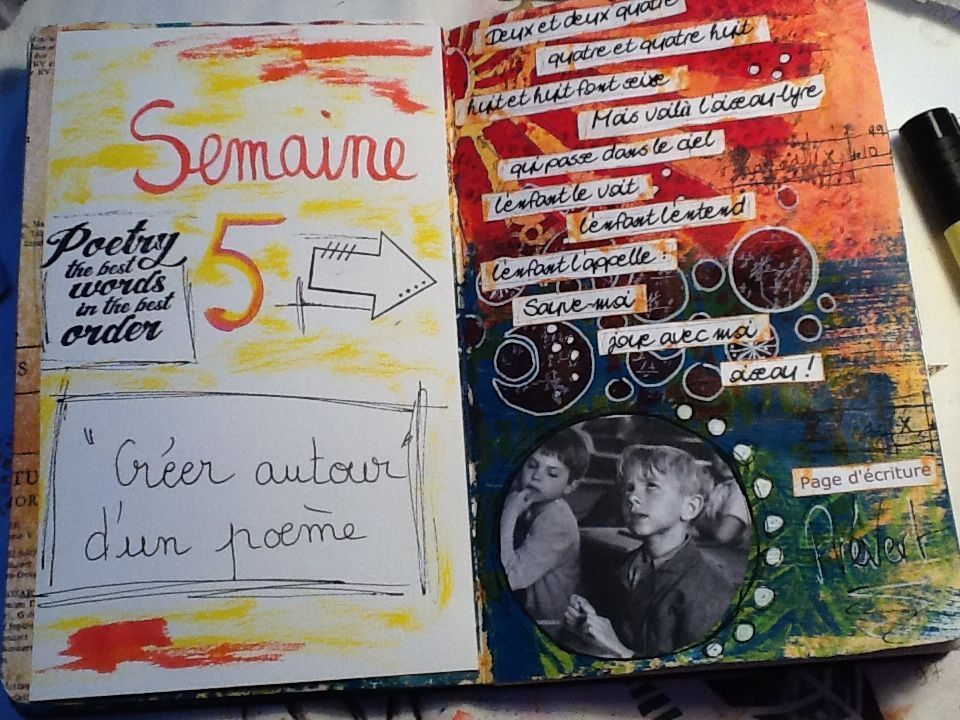 Semaine
5
Poetry
the best
words
in the best
order
"Créer autour"
d'un poème
Deux et deux quatre
quatre et quatre huit
huit et huit font seise
Mais voilà l'oiseau-lyre
qui passe dans le ciel
l'enfant le voit
l'enfant l'entend
l'enfant l'appelle :
Sauve-moi
joue avec moi
oiseau !
Page d'écriture
Prévert